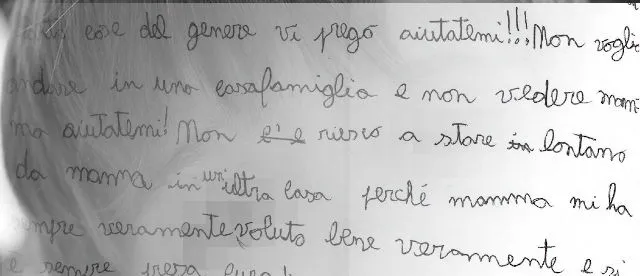 cose del genere vi prego aiutatemi!!! Non voglio
andare in una casafamiglia e non vedere mam-
ma aiutatemi! Non e' e riesco a stare in lontano
da mamma in un'altra casa perché mamma mi ha
sempre veramente voluto bene veramente e si
e sempre presa cura